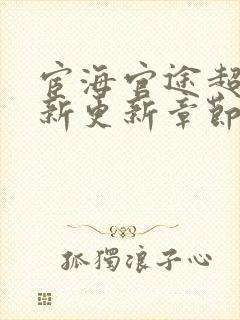 宦海官途超
新更新章節
孤獨浪子心